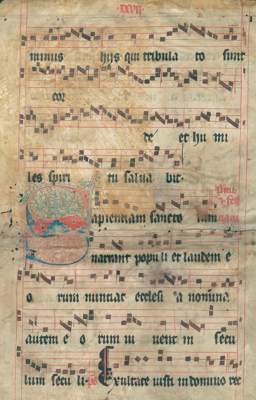 XXVII
minus hijs qui tribula to sunt
cor
de et hu mi
les spiri tu salua bit
Sapientiam sancto rum
narrant populi et laudem e
o rum nunciat ecclesi a nomina
autem e o rum vi vent in secu
lum secu li ps Exultate iusti in domino rec